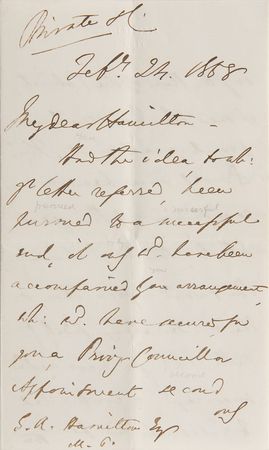 Private &
Feby. 24. 1868
My dear Hamilton -
Had the idea to wh:
yr letter referred, been
pursued to a successful
end, it ought wd. have been
accompanied by an arrangement,
wh: wd. have secured for
you, a Privy Councillor
Appointment second
only
G. A. Hamilton Esq
M. P.